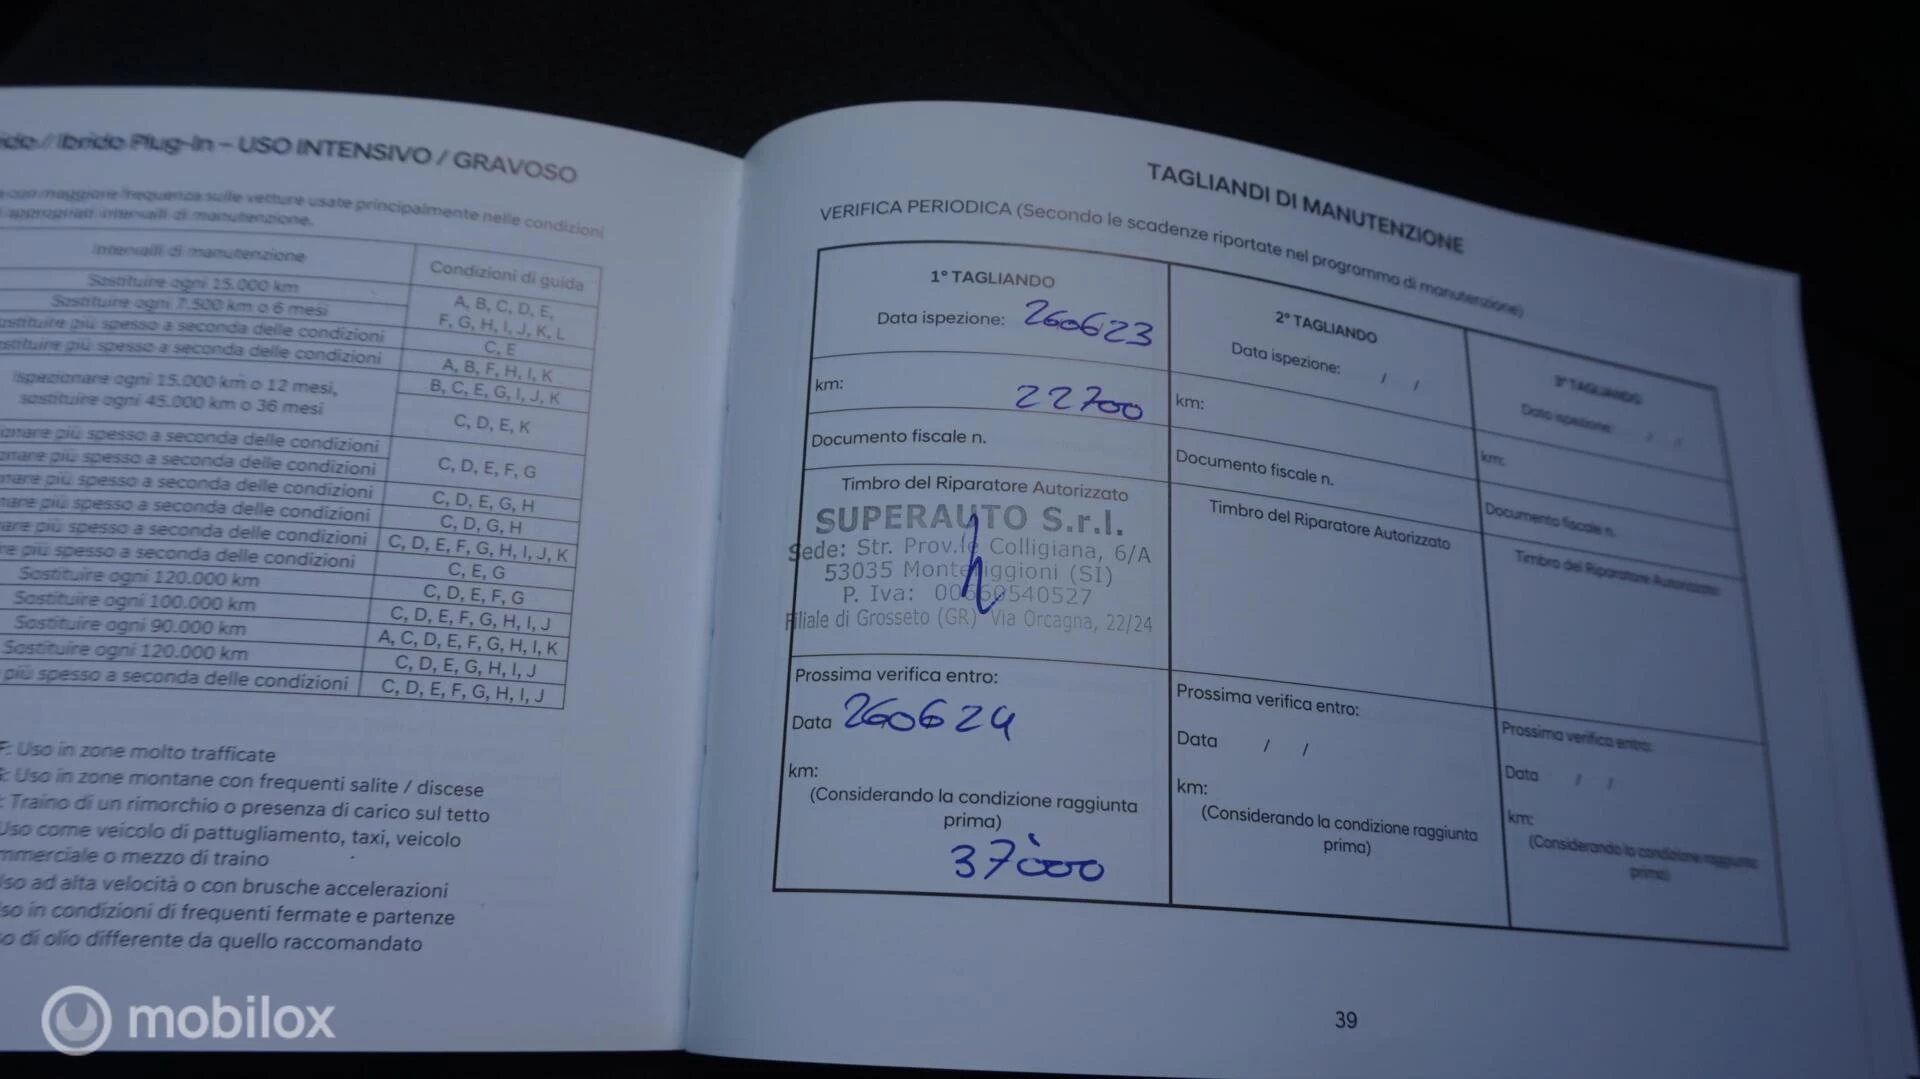 / Ibrido Plug-In – USO INTENSIVO / GRAVOSO
con maggiore frequenza sulle vetture usate principalmente nelle condizioni
appropriati intervalli di manutenzione.
Intervalli di manutenzione
Condizioni di guida
Sostituire ogni 15.000 km
A, B, C, D, E,
F, G, H, I, J, K, L
Sostituire ogni 7.500 km o 6 mesi
più spesso a seconda delle condizioni
C, E
più spesso a seconda delle condizioni
A, B, F, H, I, K
Ispezionare ogni 15.000 km o 12 mesi,
B, C, E, G, I, J, K
sostituire ogni 45.000 km o 36 mesi
C, D, E, K
più spesso a seconda delle condizioni
C, D, E, F, G
più spesso a seconda delle condizioni
più spesso a seconda delle condizioni
C, D, E, G, H
più spesso a seconda delle condizioni
C, D, G, H
più spesso a seconda delle condizioni
C, D, E, F, G, H, I, J, K
più spesso a seconda delle condizioni
C, E, G
Sostituire ogni 120.000 km
C, D, E, F, G
Sostituire ogni 100.000 km
C, D, E, F, G, H, I, J
Sostituire ogni 90.000 km
A, C, D, E, F, G, H, I, K
Sostituire ogni 120.000 km
C, D, E, G, H, I, J
più spesso a seconda delle condizioni
C, D, E, F, G, H, I, J
F: Uso in zone molto trafficate
Uso in zone montane con frequenti salite / discese
: Traino di un rimorchio o presenza di carico sul tetto
Uso come veicolo di pattugliamento, taxi, veicolo
o mezzo di traino
Uso ad alta velocità o con brusche accelerazioni
in condizioni di frequenti fermate e partenze
di olio differente da quello raccomandato
TAGLIANDI DI MANUTENZIONE
VERIFICA PERIODICA (Secondo le scadenze riportate nel programma di manutenzione)
1° TAGLIANDO
Data ispezione: 260623
km: 22700
Documento fiscale n.
Timbro del Riparatore Autorizzato
SUPERAUTO S.r.l.
Sede: Str. Prov.le Colligiana, 6/A
53035 Monteriggioni (SI)
P. Iva: 00660540527
Filiale di Grosseto (GR) Via Orcagna, 22/24
Prossima verifica entro:
Data 260624
km:
(Considerando la condizione raggiunta
prima)
37000
2° TAGLIANDO
Data ispezione: / /
km:
Documento fiscale n.
Timbro del Riparatore Autorizzato
Prossima verifica entro:
Data / /
km:
(Considerando la condizione raggiunta
prima)
3° TAGLIANDO
Data ispezione: / /
km:
Documento fiscale n.
Timbro del Riparatore Autorizzato
Prossima verifica entro:
Data / /
km:
(Considerando la condizione raggiunta
prima)
39
mobilox